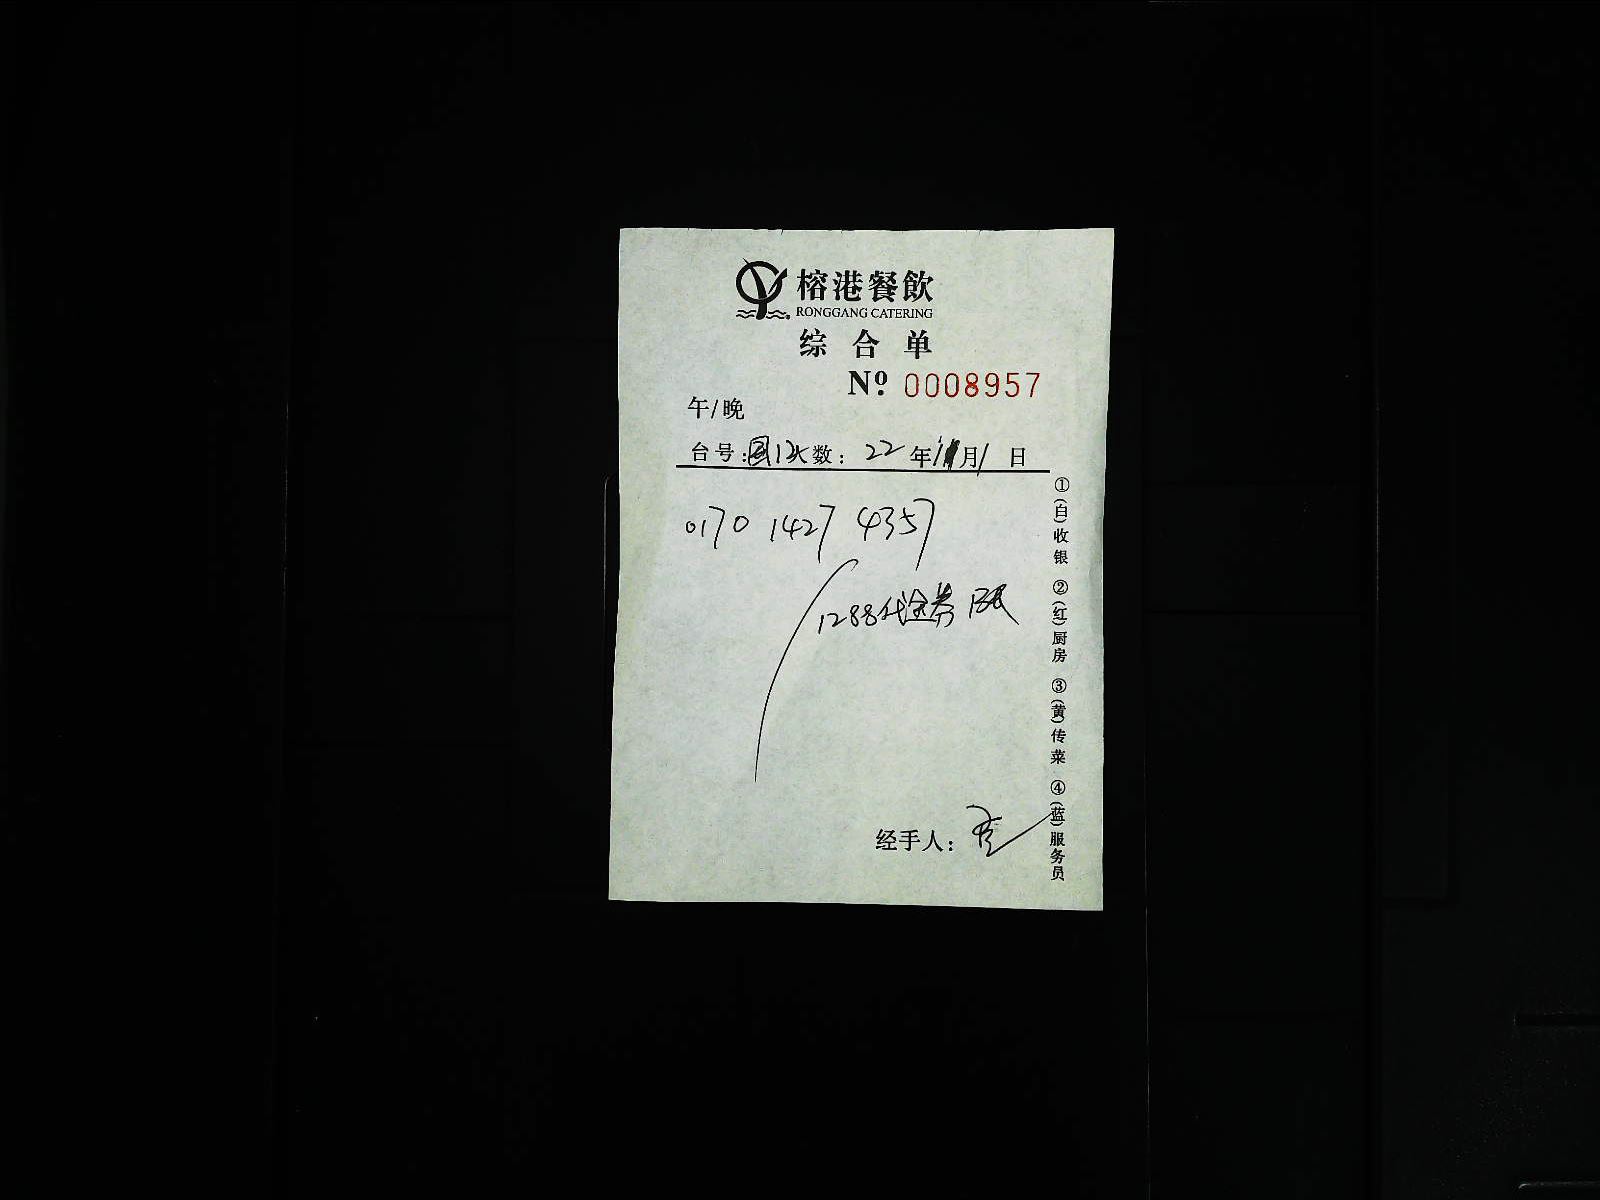 榕港餐飲
RONGGANG CATERING
综合单
Nº. 0008957
午/晚
台号: 数: 22年 月1日
0170 1427 4357
1288代金券
经手人:
①(白)收银 ②(红)厨房 ③(黄)传菜 ④(蓝)服务员